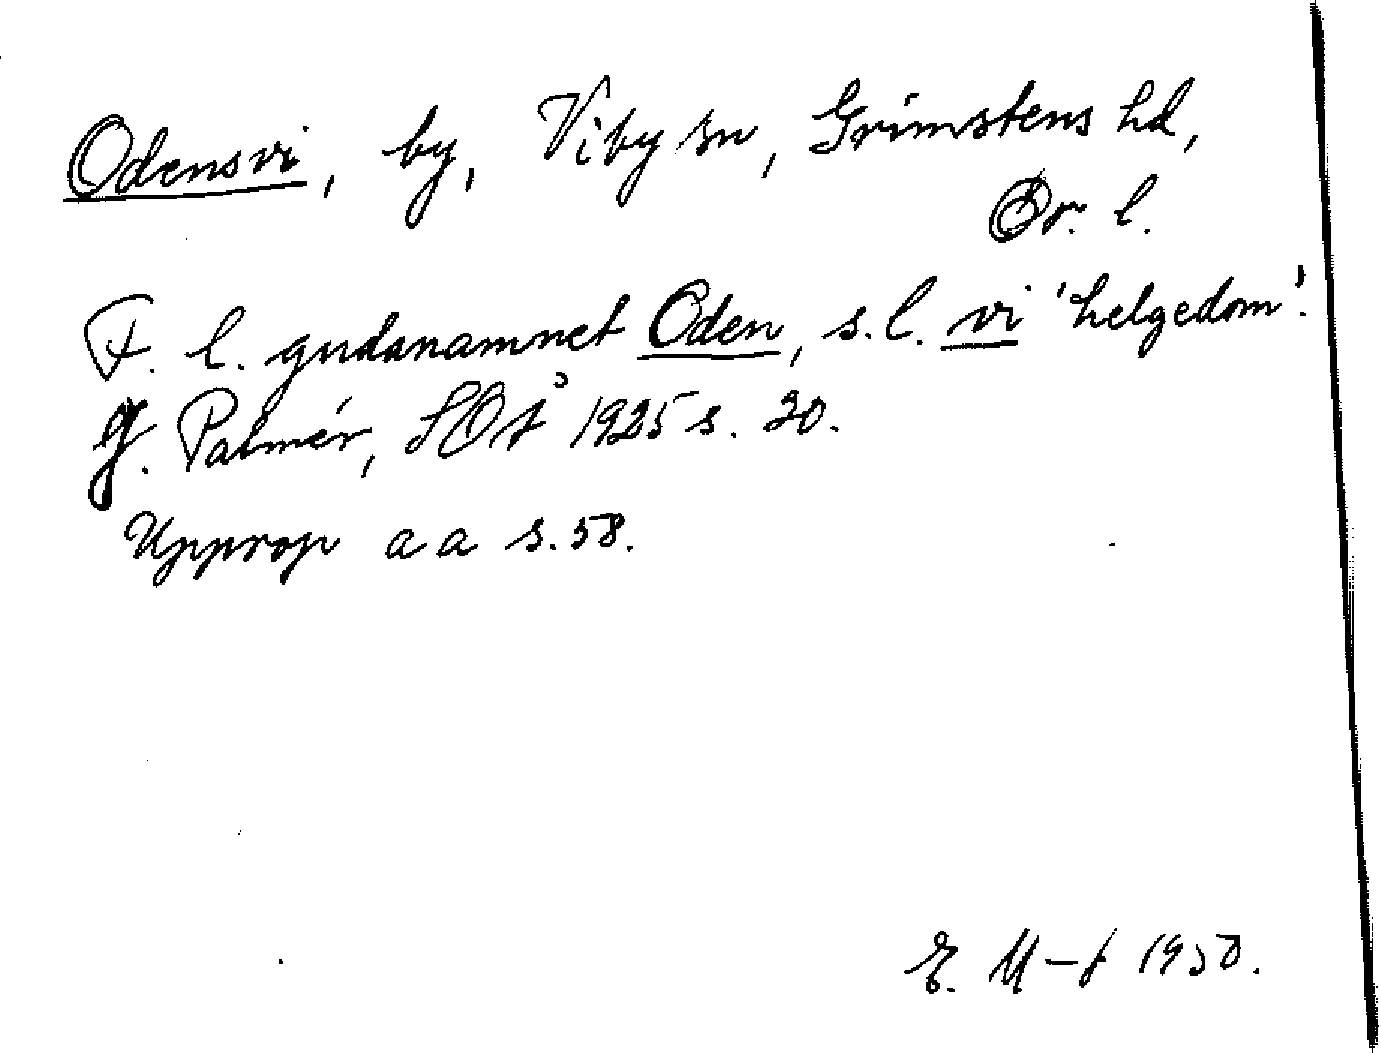 Odensvi, by, Viby sn, Grimstens hd,
Ör. l.
F. l. gudanamnet Oden, s. l. vi 'helgedom'.
J. Palmér, SOÅ 1925 s. 20.
Upprop a a s. 58.
E. M-f 1950.